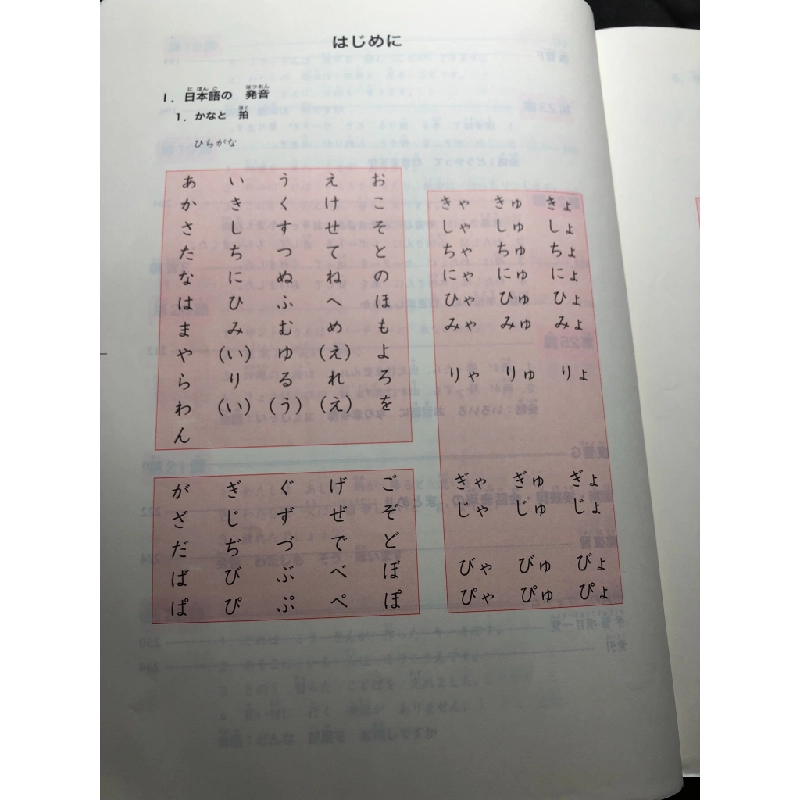 はじめに
I. 日本語の 発音
1. かなと 拍
ひらがな
あ い う え お
か き く け こ
さ し す せ そ
た ち つ て と
な に ぬ ね の
は ひ ふ へ ほ
ま み む め も
や (い) ゆ (え) よ
ら り る れ ろ
わ (い) (う) (え) を
ん
きゃ きゅ きょ
しゃ しゅ しょ
ちゃ ちゅ ちょ
にゃ にゅ にょ
ひゃ ひゅ ひょ
みゃ みゅ みょ
りゃ りゅ りょ
が ぎ ぐ げ ご
ざ じ ず ぜ ぞ
だ ぢ づ で ど
ば び ぶ べ ぼ
ぱ ぴ ぷ ぺ ぽ
ぎゃ ぎゅ ぎょ
じゃ じゅ じょ
びゃ びゅ びょ
ぴゃ ぴゅ ぴょ